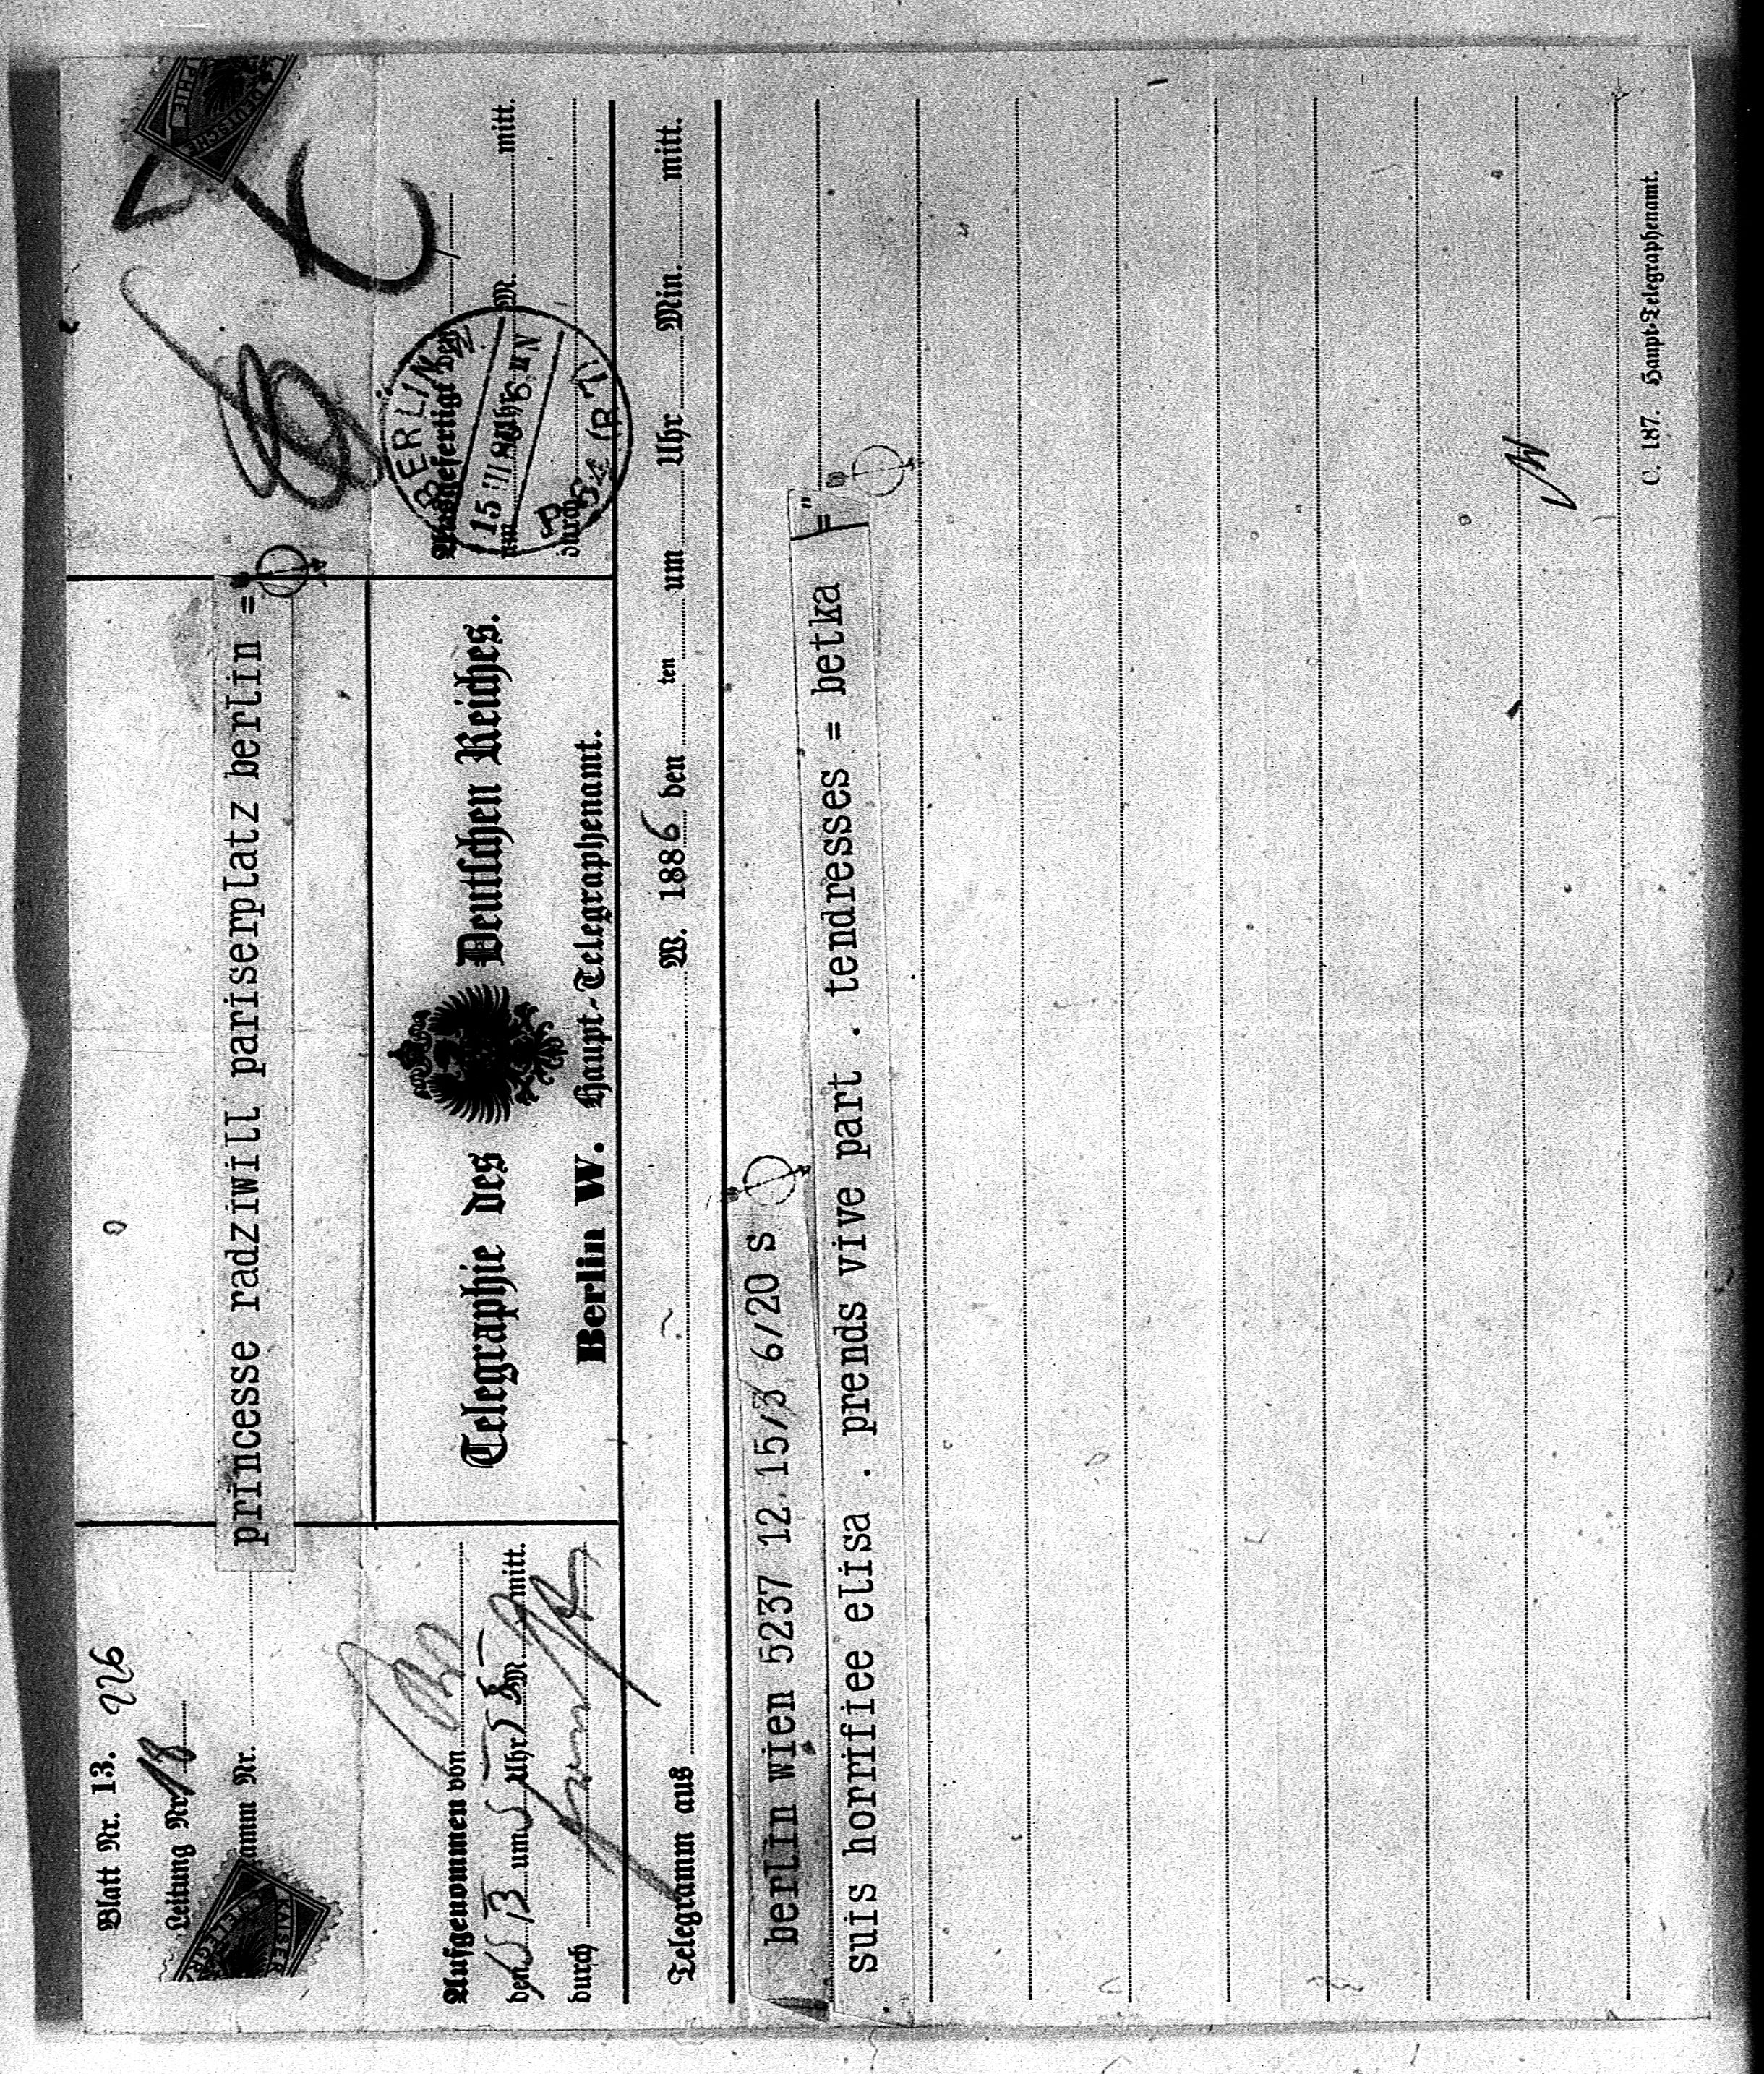 Blatt Nr. 13. 226
Leitung Nr. 18
amm Nr.
princesse radziwill pariserplatz berlin =
DEUTSCHE
KAISER
Aufgenommen von
den 15/3 um 5 Uhr M. mitt.
durch
Telegraphie des Deutschen Reiches.
Berlin W. Haupt-Telegraphenamt.
Ausgefertigt den
um Uhr M. mitt.
durch
BERLIN W
15 III 86 6-7N
P 64 (R7)
Telegramm aus W. 1886 den ten um Uhr Min. mitt.
berlin wien 5237 12 15/3 6/20 s
suis horrifiee elisa . prends vive part . tendresses = betka =
C. 187. Haupt-Telegraphenamt.